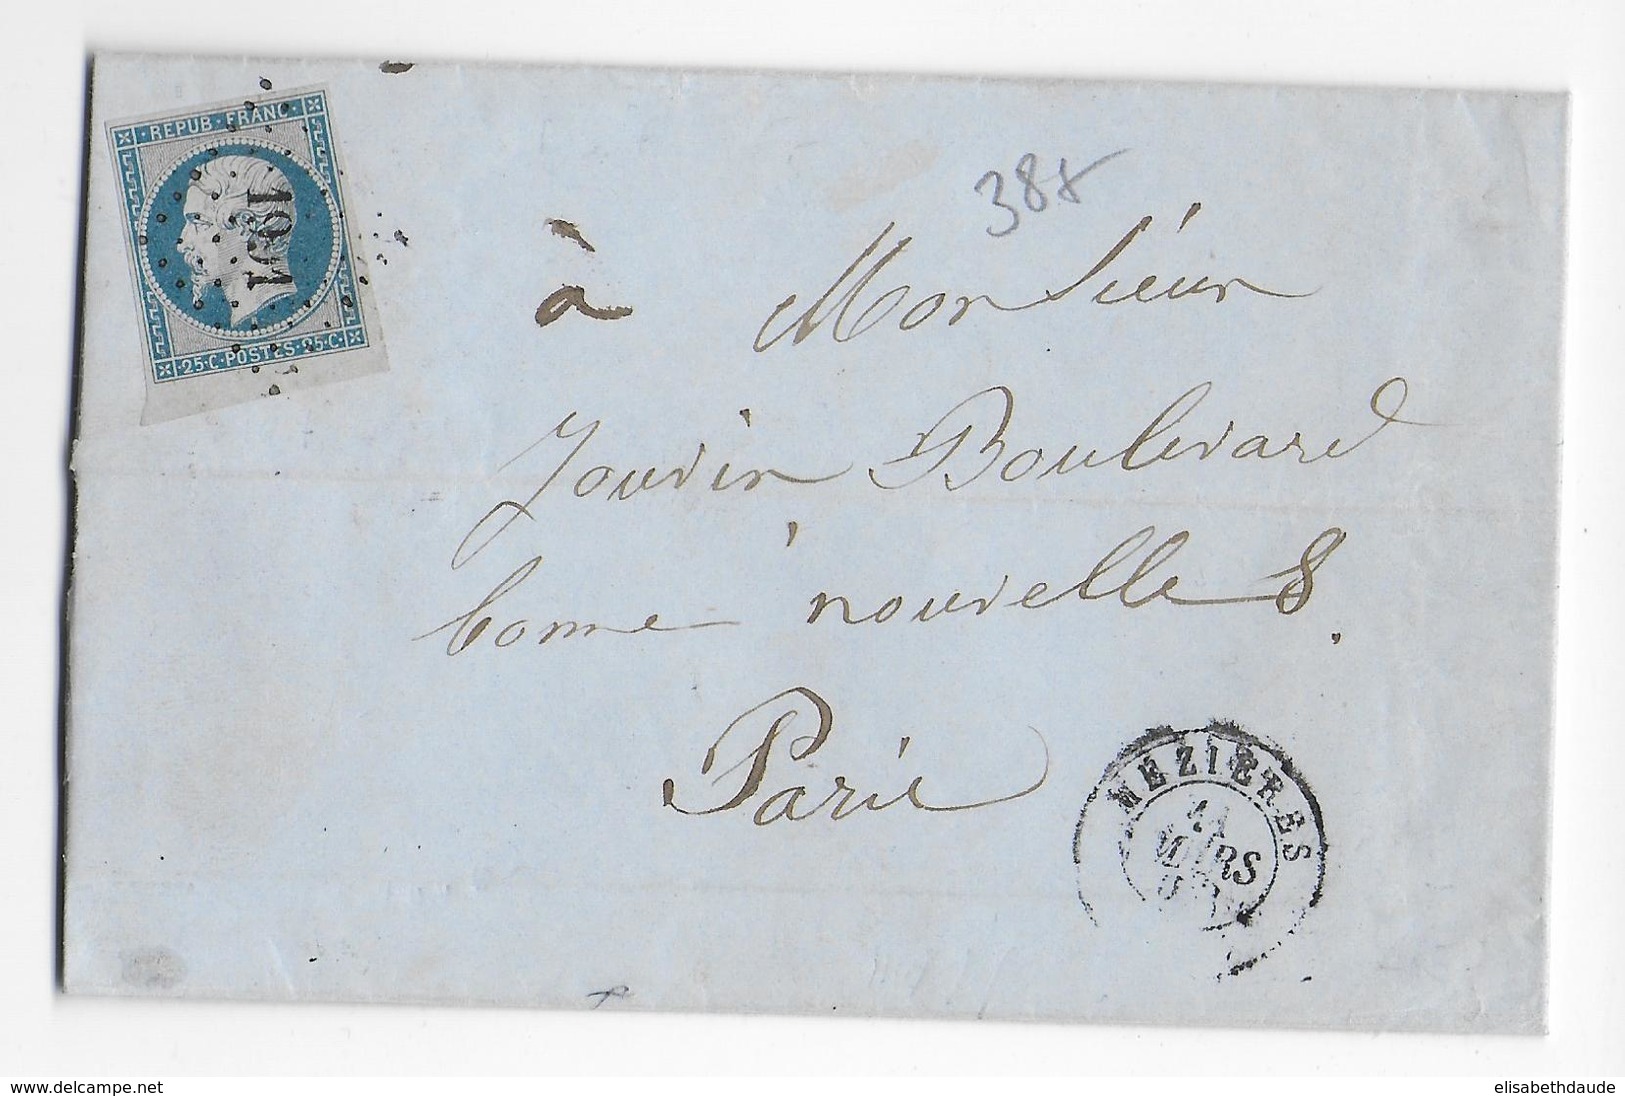 REPUB·FRANC·
25·C·POSTES·25·C·
38x
à Monsieur
Jouvin Boulevard
bonne nouvelle 8.
Paris
MEZIERES
MARS
www.delcampe.net
elisabethdaude